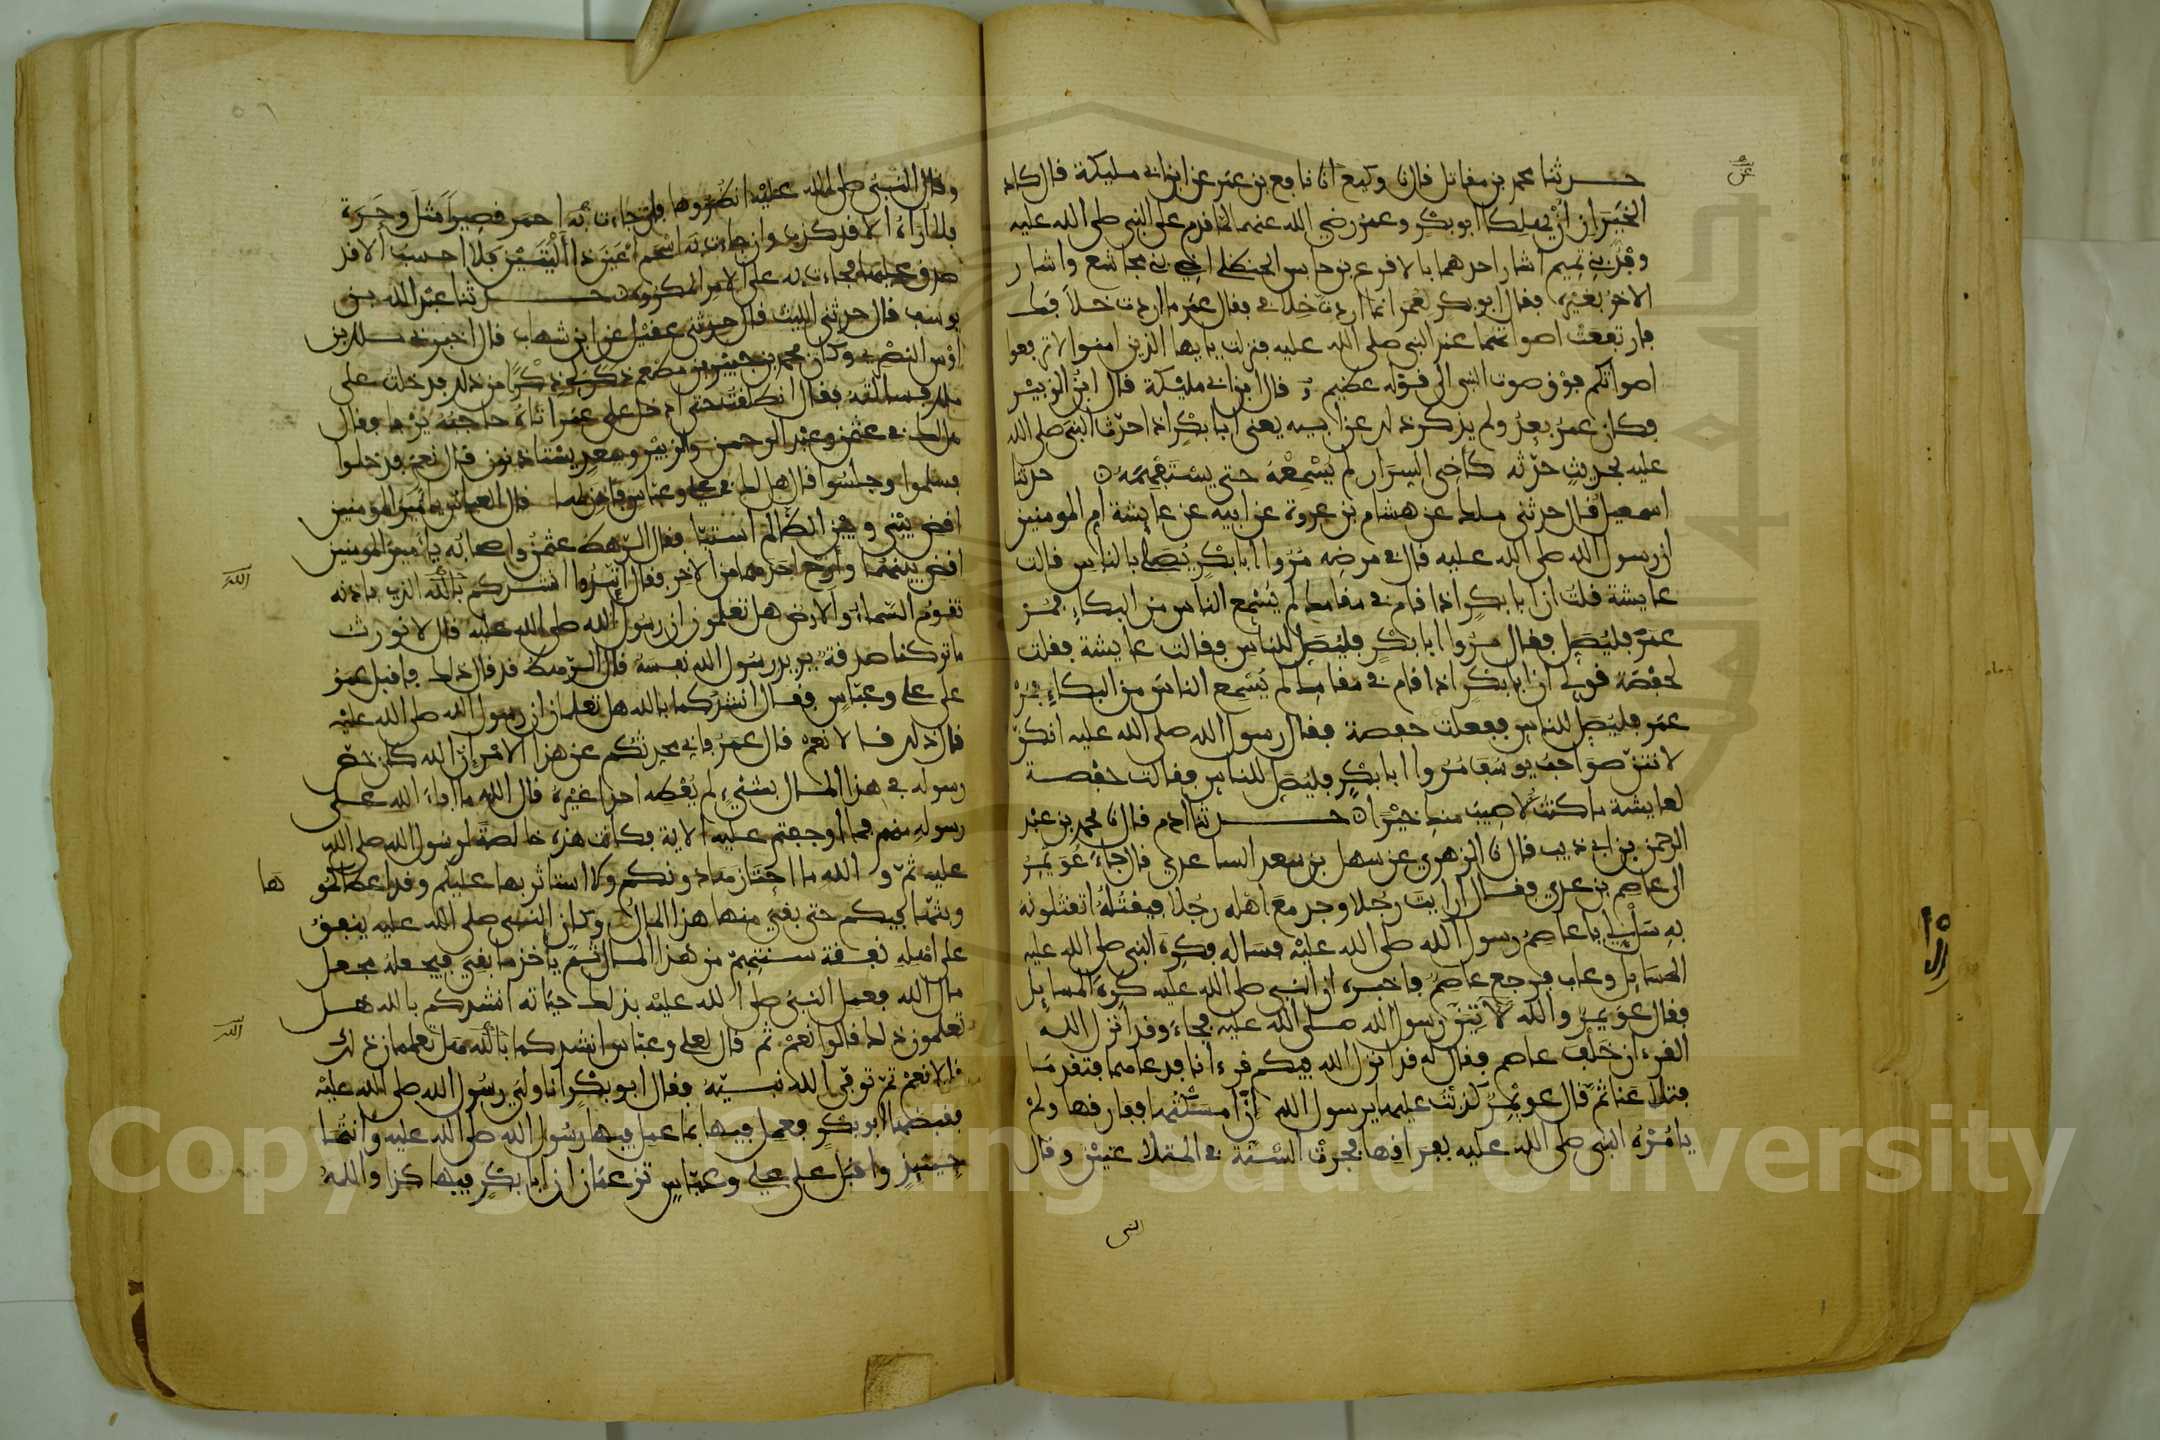 حدثنا محمد بن مقاتل قال نا وكيع انا نافع بن عمر عن ابن ابي مليكة قال كاد
الخيران ان يهلكا ابو بكر وعمر رضي الله عنهما لما قدم على النبي صلى الله عليه
وفد بني تميم اشار احدهما بالاقرع بن حابس الحنظلي اخي بني مجاشع واشار
الاخر بغيره فقال ابو بكر لعمر انما اردت خلافي فقال عمر ما اردت خلافك
فارتفعت اصواتهما عند النبي صلى الله عليه فنزلت يايها الذين امنوا لا ترفعوا
اصواتكم فوق صوت النبي الى قوله عظيم قال ابن ابي مليكة قال ابن الزبير
فكان عمر بعد ولم يذكر ذلك عن ابيه يعني ابا بكر اذا حدث النبي صلى الله
عليه بحديث حدثه كاخي السرار لم يسمعه حتى يستفهمه حدثنا
اسمعيل قال حدثني ملك عن هشام بن عروة عن ابيه عن عايشة ام المومنين
ان رسول الله صلى الله عليه قال في مرضه مروا ابا بكر يصلي بالناس قالت
عايشة قلت ان ابا بكر اذا قام في مقامك لم يسمع الناس من البكاء فمر
عمر فليصل فقال مروا ابا بكر فليصل للناس فقالت عايشة فقلت
لحفصة قولي ان ابا بكر اذا قام في مقامك لم يسمع الناس من البكاء فمر
عمر فليصل للناس ففعلت حفصة فقال رسول الله صلى الله عليه انكن
لانتن صواحب يوسف مروا ابا بكر فليصل للناس فقالت حفصة
لعايشة ما كنت لاصيب منك خيرا حدثنا ادم قال نا محمد بن عبد
الرحمن بن ابي ذيب قال نا الزهري عن سهل بن سعد الساعدي قال جاء عويمر
الى عاصم بن عدي فقال ارايت رجلا وجد مع اهله رجلا فيقتله اتقتلونه
به سل لي يا عاصم رسول الله صلى الله عليه فساله فكره النبي صلى الله عليه
المسايل وعاب فرجع عاصم فاخبره ان النبي صلى الله عليه كره المسايل
فقال عويمر والله لاتين رسول الله صلى الله عليه فجاء وقد انزل الله
القرءان خلف عاصم فقال له قد انزل الله فيكم قرءانا فدعاهما فتقدما
فتلاعنا ثم قال عويمر كذبت عليها يرسول الله ان امسكتها ففارقها ولم
يامره النبي صلى الله عليه بفراقها فجرت السنة في المتلاعنين وقال
النبي
وقال النبي صلى الله عليه انظروها فان جاءت به احمر قصيرا مثل وحرة
فلا اراه الا قد كذب وان جاءت به اسحم اعين ذا اليتين فلا احسب الا قد
صدق عليها فجاءت به على الامر المكروه حدثنا عبد الله بن
يوسف قال حدثني الليث قال حدثني عقيل عن ابن شهاب قال اخبرني ملك بن
اوس النصري وكان محمد بن جبير بن مطعم ذكر لي ذكرا من ذلك فدخلت على
ملك فسالته فقال انطلقت حتى ادخل على عمر اتاه حاجبه يرفا فقال
هل لك في عثمن وعبد الرحمن والزبير وسعد يستاذنون قال نعم فدخلوا
فسلموا وجلسوا قال هل لك في علي وعباس فاذن لهما قال العباس يا امير المومنين
اقض بيني وبين الظالم استبا فقال الرهط عثمن واصحابه يا امير المومنين
اقض بينهما وارح احدهما من الاخر فقال اتئدوا انشدكم بالله الذي باذنه
تقوم السماء والارض هل تعلمون ان رسول الله صلى الله عليه قال لا نورث
ما تركنا صدقة يريد رسول الله نفسه قال الرهط قد قال ذلك فاقبل عمر
على علي وعباس فقال انشدكما بالله هل تعلمان ان رسول الله صلى الله عليه
قال ذلك قالا نعم قال عمر فاني محدثكم عن هذا الامر ان الله كان خص
رسوله في هذا المال بشيء لم يعطه احدا غيره قال الله ما افاء الله على
رسوله منهم فما اوجفتم عليه الاية فكانت هذه خالصة لرسول الله صلى الله
عليه ثم والله ما احتازها دونكم ولا استاثر بها عليكم وقد اعطاكموها
وبثها فيكم حتى بقي منها هذا المال وكان النبي صلى الله عليه ينفق
على اهله نفقة سنتهم من هذا المال ثم ياخذ ما بقي فيجعله مجعل
مال الله فعمل النبي صلى الله عليه بذلك حياته انشدكم بالله هل
تعلمون ذلك قالوا نعم ثم قال لعلي وعباس انشدكما بالله هل تعلمان ذلك
قالا نعم ثم توفى الله نبيه فقال ابو بكر انا ولي رسول الله صلى الله عليه
فقبضها ابو بكر فعمل فيها بما عمل فيها رسول الله صلى الله عليه وانتما
حينئذ واقبل على علي وعباس تزعمان ان ابا بكر فيها كذا والله
Copyright © King Saud University